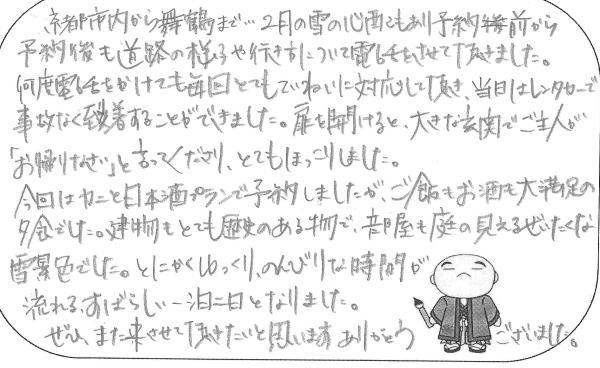 京都市内から舞鶴まで…2月の雪の心配もあり予約前から
予約後も道路の様子や行き方について電話をさせて頂きました。
何度電話をかけても毎回とてもていねいに対応して頂き、当日はレンタカーで
事故なく到着することができました。扉を開けると、大きな玄関でご主人が
「お帰りなさい」と言ってくださり、とてもほっこりしました。
今回はカニと日本酒プランで予約しましたが、ご飯もお酒も大満足の
夕食でした。建物もとても歴史のある物で、部屋も庭の見えるぜいたくな
雪景色でした。とにかくゆっくり、のんびりな時間が
流れる、すばらしい一泊二日となりました。
ぜひ、また来させて頂きたいと思います ありがとう ございました。